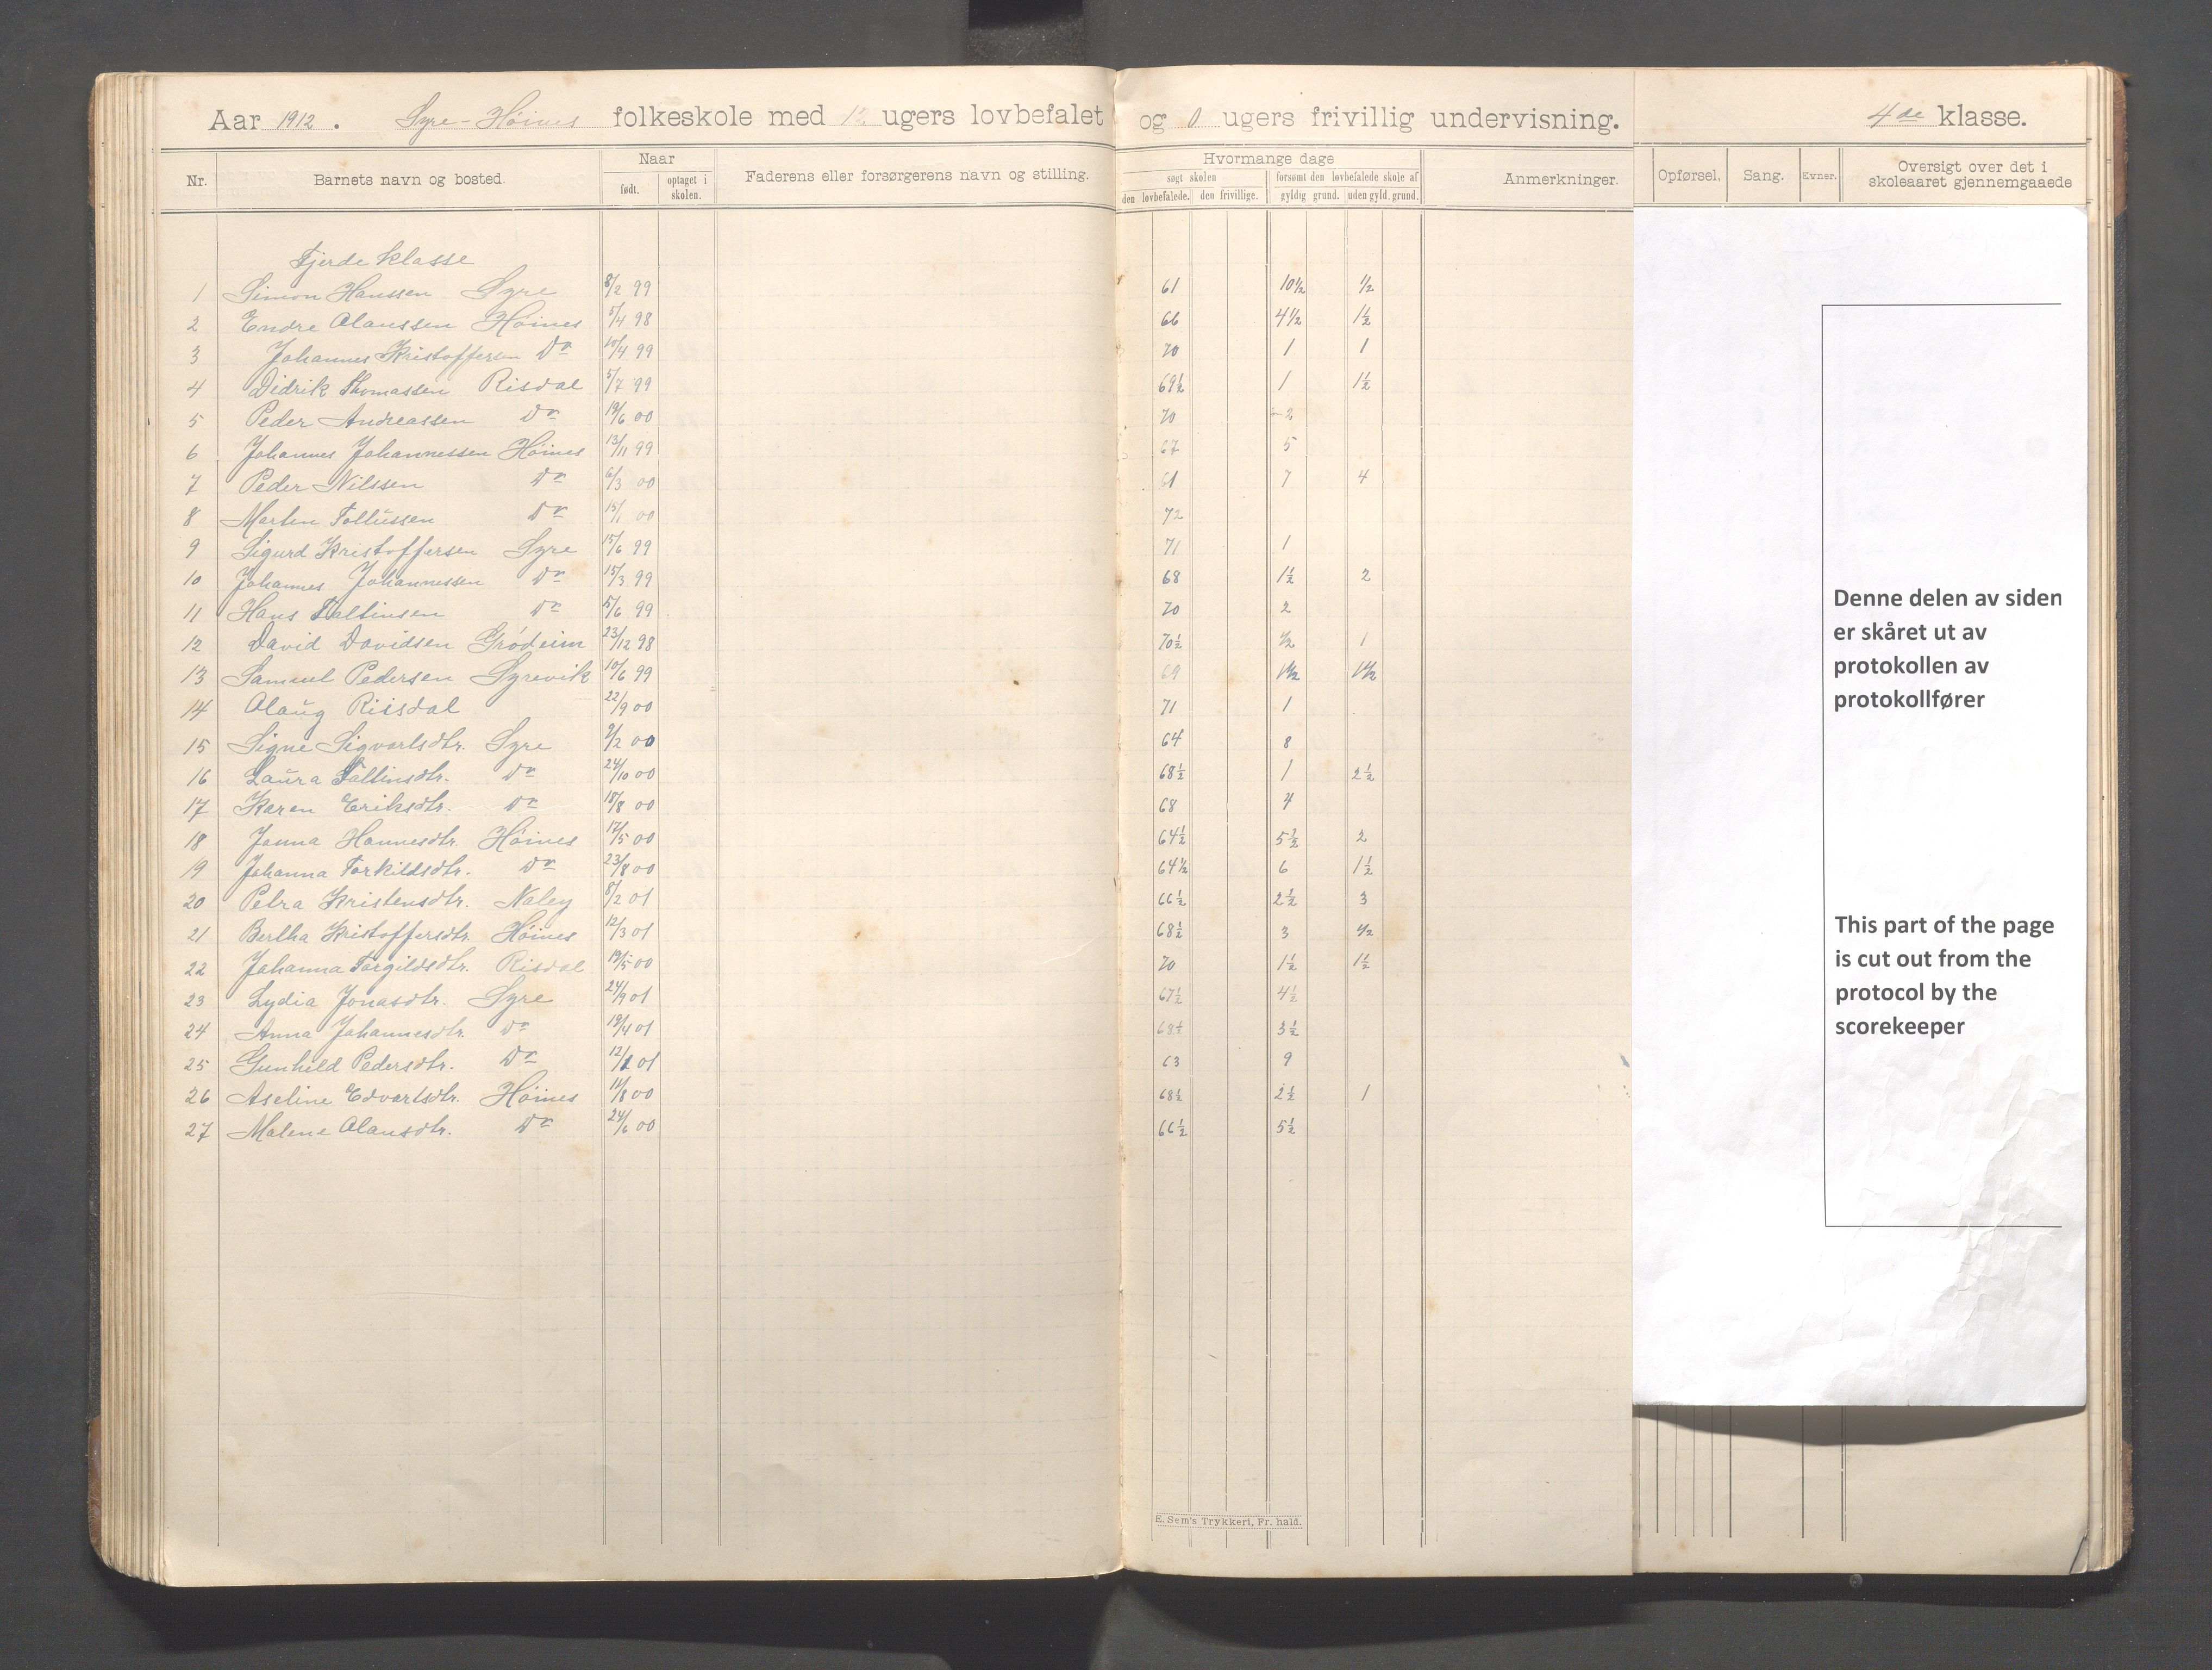 Aar 1912. Syre-Höines folkeskole med 12 ugers lovbefalet og 0 ugers frivillig undervisning. 4de klasse.
Nr. Barnets navn og bosted. Naar født. optaget i skolen. Faderens eller forsørgerens navn og stilling. Hvormange dage søgt skolen den lovbefalede. den frivillige. forsømt den lovbefalede skole af gyldig grund. uden gyld. grund. Anmerkninger. Opførsel. Sang. Evner. Oversigt over det i skoleaaret gjennemgaaede
Fjerde klasse
1 Simon Hanssen Syre 8/2 99 61 10½ ½
2 Endre Olaussen Höines 5/4 98 66 4½ 1½
3 Johannes Kristoffersen Do 10/4 99 70 1 1
4 Didrik Thomassen Risdal 5/7 99 69½ 1 1½
5 Peder Andreassen Do 19/6 00 70 2
6 Johannes Johannessen Höines 13/11 99 67 5
7 Peder Nilssen Do 6/3 00 61 7 4
8 Marten Tollüssen Do 15/1 00 72
9 Sigurd Kristoffersen Syre 15/6 99 71 1
10 Johannes Johannessen Do 15/3 99 68 1½ 2
11 Hans Faltinsen Do 5/6 99 70 2
12 David Davidsen Grödeim 23/12 98 70½ ½ 1
13 Samuel Pedersen Syrevik 10/6 99 69 1½ 1½
14 Olaüg Riisdal 22/9 00 71 1
15 Signe Sigvartsdtr. Syre 9/2 00 64 8
16 Laüra Faltinsdtr. Do 24/10 00 68½ 1 2½
17 Karen Eriksdtr. Do 18/8 00 68 4
18 Janna Hannesdtr. Höines 17/5 00 64½ 5½ 2
19 Johanna Torkildsdtr. Do 23/8 00 64½ 6 1½
20 Petra Kristensdtr. Naley 8/2 01 66½ 2½ 3
21 Bertha Kristoffersdtr. Höines 12/3 01 68½ 3 ½
22 Johanna Torgildsdtr. Risdal 19/5 00 70 1½ 1½
23 Lydia Jonasdtr. Syre 24/9 01 67½ 4½
24 Anna Johannesdtr. Do 19/4 01 68½ 3½
25 Gunhild Pedersdtr. Do 12/1 01 63 9
26 Aseline Edvartsdtr. Höines 11/8 00 68½ 2½ 1
27 Malene Olausdtr. Do 24/6 00 66½ 5½
Denne delen av siden
er skåret ut av
protokollen av
protokollfører
This part of the page
is cut out from the
protocol by the
scorekeeper
E. Sem's Trykkeri, Fr. hald.